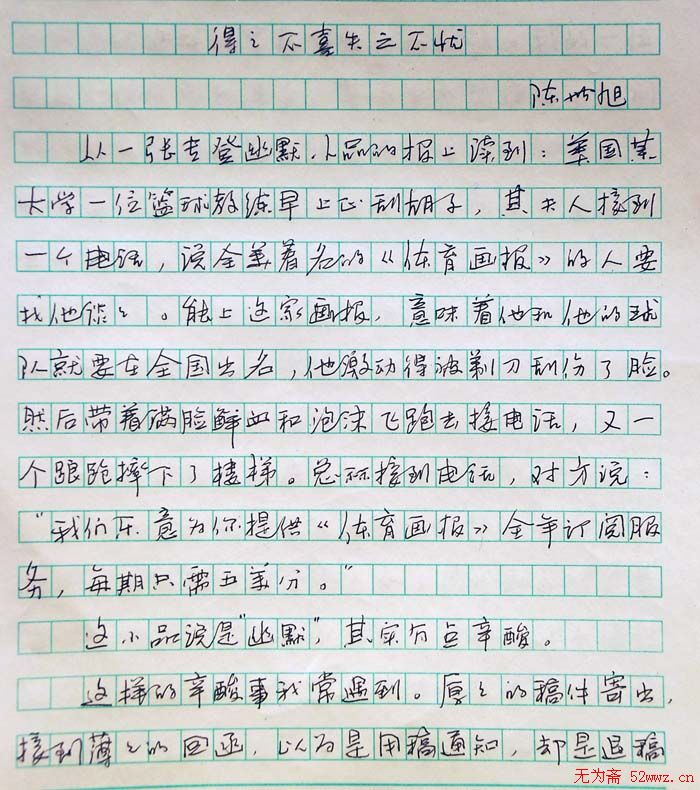 得之不喜失之不忧
陈世旭
从一张专登幽默小品的报上读到：美国某
大学一位篮球教练早上正刮胡子，其夫人接到
一个电话，说全美著名的《体育画报》的人要
找他谈谈。能上这家画报，意味着他和他的球
队就要在全国出名，他激动得被剃刀刮伤了脸。
然后带着满脸鲜血和泡沫飞跑去接电话，又一
个踉跄摔下了楼梯。总算接到电话，对方说：
“我们乐意为你提供《体育画报》全年订阅服
务，每期只需五美分。”
这小品说是“幽默”，其实有点辛酸。
这样的辛酸事我常遇到。厚厚的稿件寄出，
接到薄薄的回函，以为是用稿通知，却是退稿
无为斋 52wwz.cn